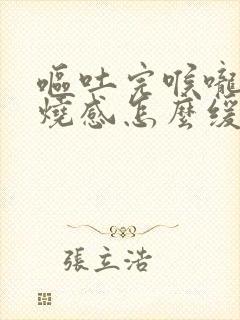 嘔吐完喉嚨
燒感怎麼緩
張立浩